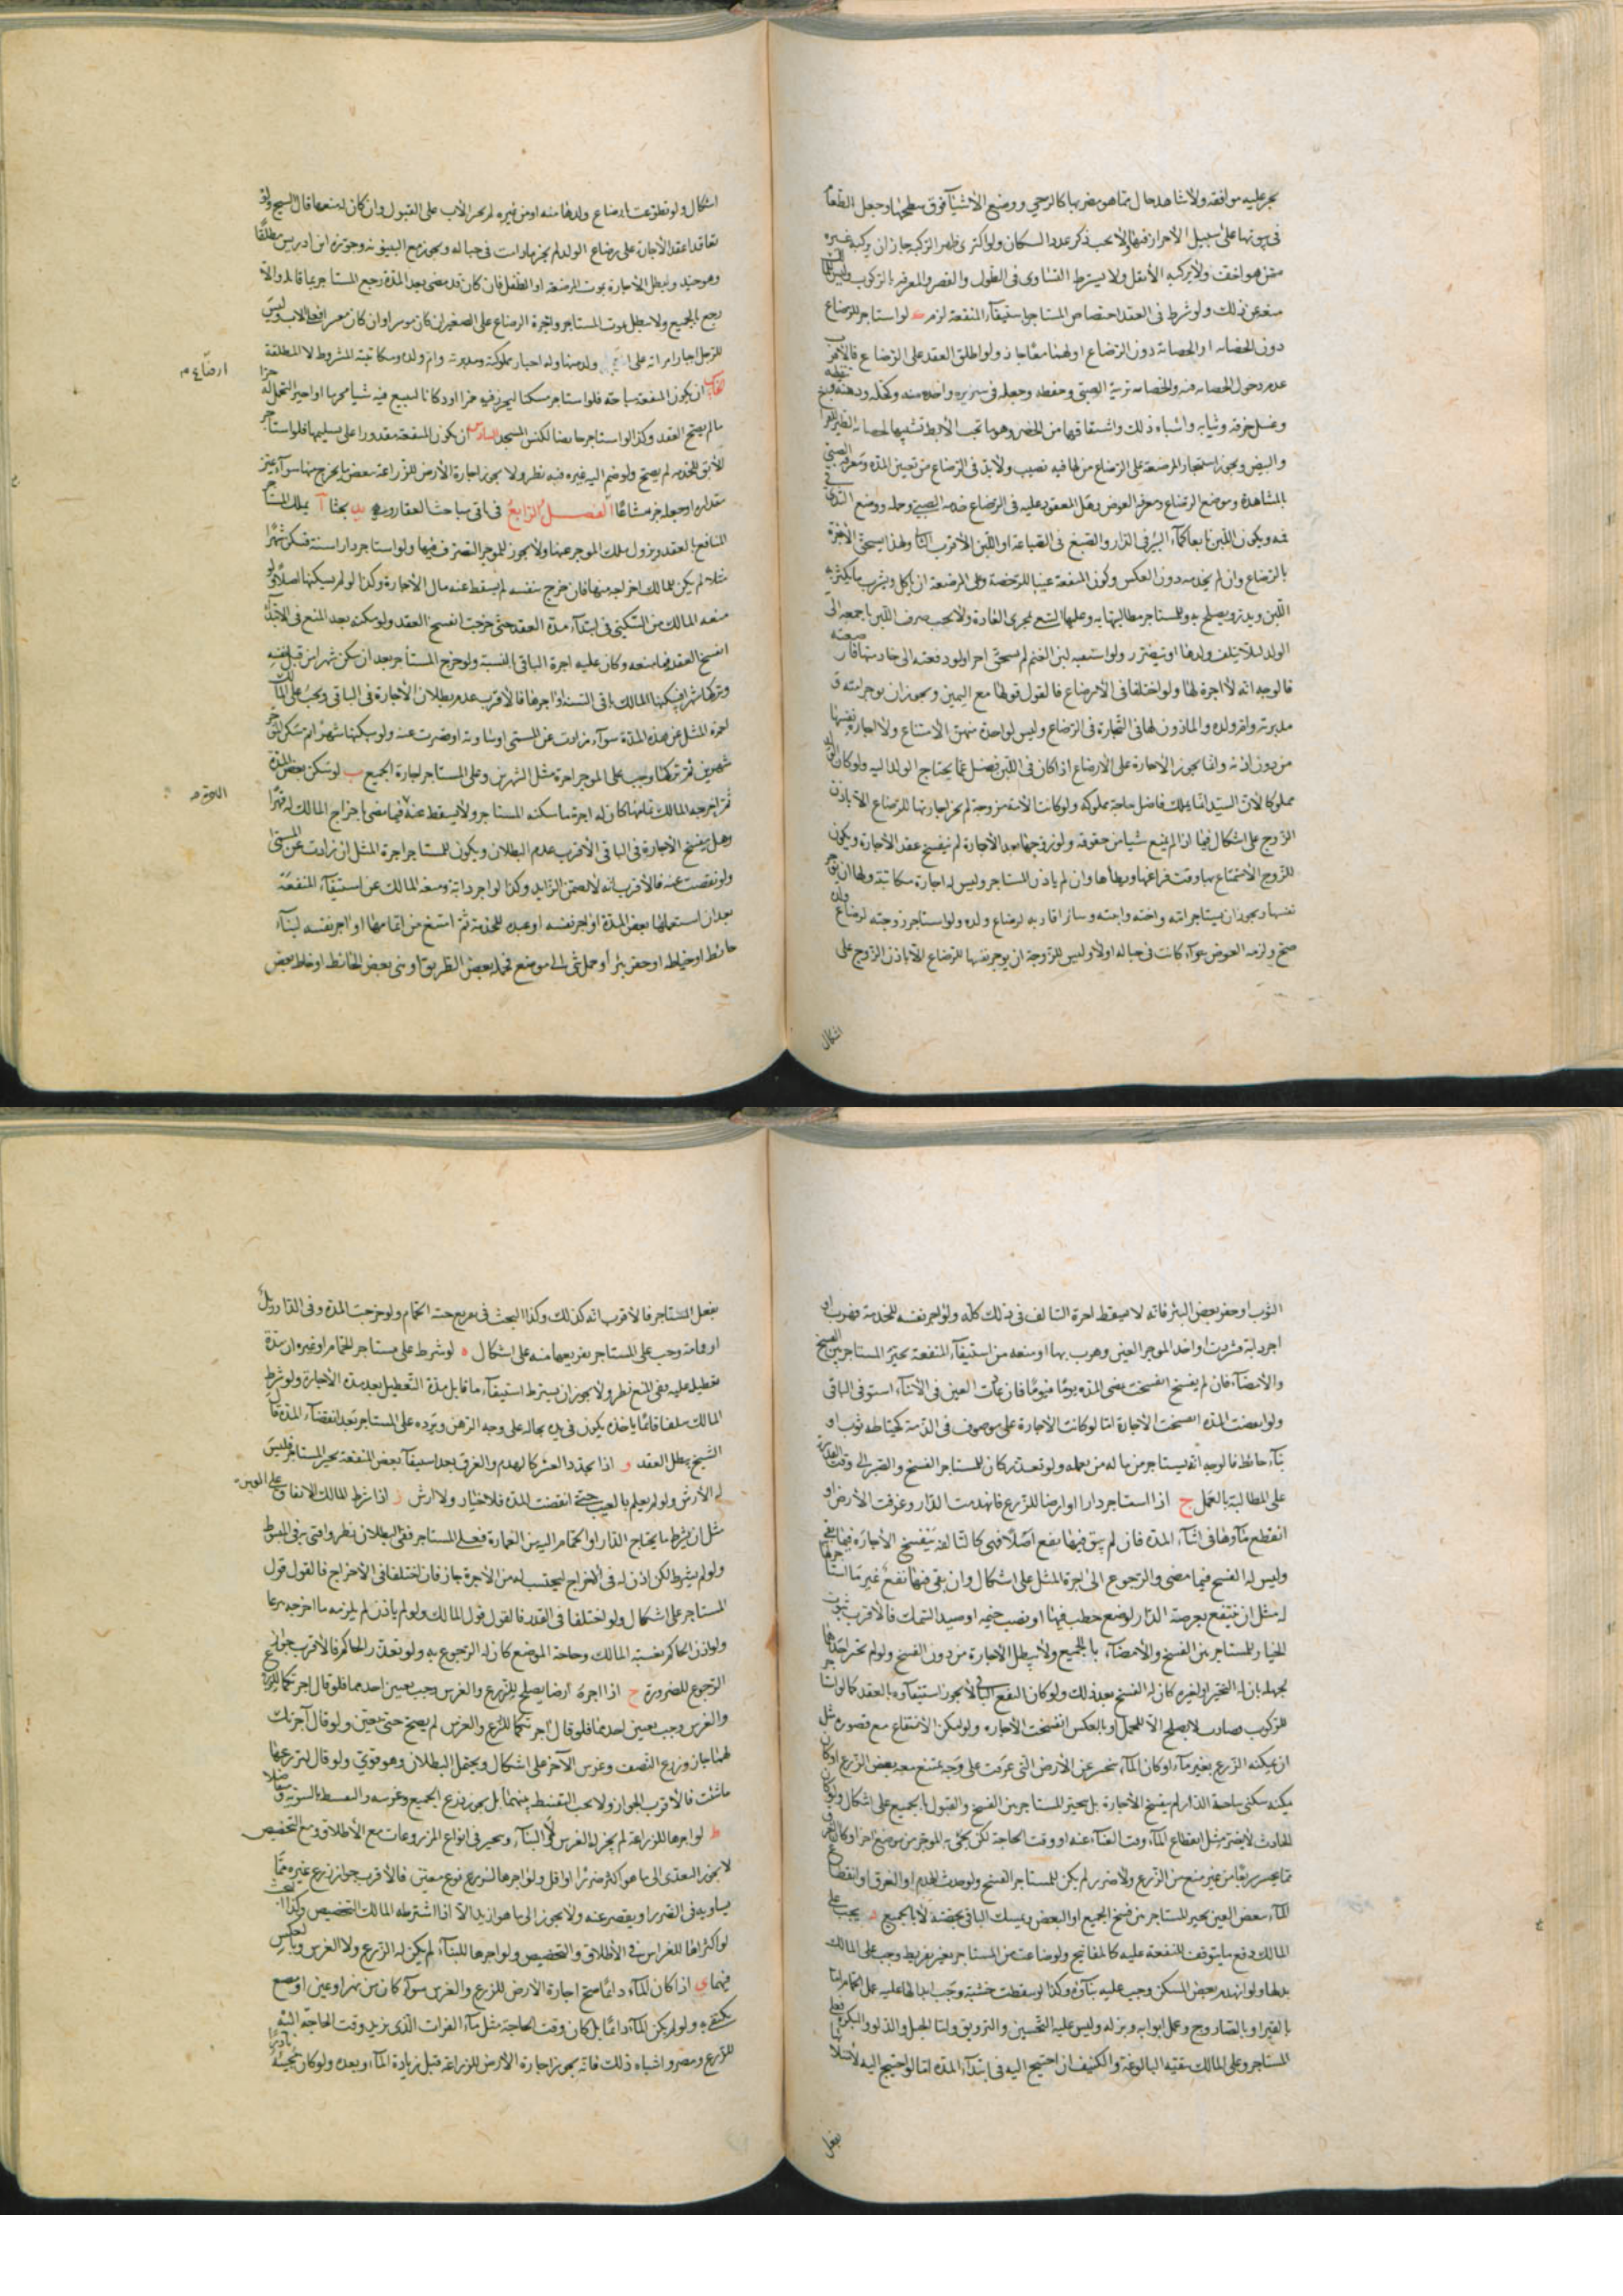 يجز عليه موافقه ولا شاهد حال مما هو مضر بها كالرحي ووضع الأشياء فوق سطحها وجعل الطعام
في بيوتها على سبيل الأحراز فيها ولا يجب ذكر عدد السكان ولو اكترى ظهرا لتركبه جاز ان يركبه غيره
ممن هو اخف ولا يركبه الأثقل ولا يشترط التساوى في الطول والقصر والمعرفه بالركوب وليس
منعه عن ذلك ولو شرط في العقد اختصاص المستاجر باستيفآء المنفعة لزم لو استاجر للرضاع
دون الحضانه او الحضانة دون الرضاع او لهما معًا جاز ولو اطلق العقد على الرضاع فالاقرب
عدم دخول الحضانه فيه والحضانه تربية الصبى وحفظه وجعله في سريره واخذه منه وكحله ودهنه
وغسل خرقه وثيابه واشباه ذلك واشتقاقها من الحضن وهو ما تحت الأبط
والبيض ويجوز استيجار المرضعة على الرضاع من لها فيه نصيب ولا بد في الرضاع من تعيين المدة ومعرفة الصبى
بالمشاهدة وموضع الرضاع ومعرفة العوض وهل المعقود عليه في الرضاع خدمه الصبى وحمله ووضع الثدى في
فمه ويكون اللبن تابعا كمآء البئر في الدار والصبغ في الصباغة او اللبن الأقرب الثانى ولهذا يستحق الأجرة
بالرضاع وان لم يخدمه دون العكس وكون المنفعة عينا للرخصة وعلى المرضعة ان ياكل ويشرب ما يكثر به
اللبن ويدر ويصلح به وللمستاجر مطالبتها به وعليها التتبع بمجرى العادة ولا يجب صرف اللبن باجمعه الى
الولد ليلا يتلف ولدها او يتضرر ولو استقيه لبن الغنم لم يستحق اجرا ولو دفعته الى خادمتها فارضعته
فالوجه انه لا اجرة لها ولو اختلفا في الأرضاع فالقول قولها مع اليمين ويجوز ان يوجر امته و
مدبرته وام ولده والماذون لها في التجارة في الرضاع وليس لواحدة منهن الأمتناع ولا اجارة نفسها
من دون اذنه وانما يجوز الأجارة على الأرضاع اذا كان في اللبن فضل عما يحتاج الولد اليه ولو كان الولد
مملوكا لأن السيد انما يملك فاضل حاجة مملوكه ولو كانت الأمة مزوجة لم يجز اجارتها للرضاع الا باذن
الزوج على اشكال فيما اذا لم يمنع شيا من حقوقه ولو زوجها بعد الأجارة لم ينفسخ عقد الأجارة ويكون
للزوج الأستمتاع بها وقت فراغها ويطأها وان لم ياذن المستاجر وليس له اجارة مكاتبته ولها ان توجر
نفسها ويجوز ان يستاجر امه واخته وابنته وسائر اقاربه لرضاع ولده ولو استاجر زوجته لرضاع ولده
صح ولزمه العوض سوآء كانت في حباله او لا وليس للزوجة ان يوجر نفسها للرضاع الا باذن الزوج على
اشكال
اشكال ولو تطوعت بارضاع ولدها منه او من غيره لم يجبر الأب على القبول وان كان له منعها قال الشيخ ولو
تعاقدا عقد الأجارة على رضاع الولد لم يجز مادامت في حباله ويجوز مع البينونه وجوزه ابن ادريس مطلقًا
وهو جيد ويبطل الأجارة بموت المرضعة او الطفل فان كان قد مضى بعد المدة رجع المستاجر بما قابله والا
رجع بالجميع ولا يبطل بموت المستاجر واجرة الرضاع على الصغير ان كان موسرا وان كان معسرا فعلى الاب وليس
للرجل اجبار امراته على ولده منها وله اجبار مملوكته ومدبرته وام ولده ومكاتبته المشروط لا المطلقة
ارضاع م
ان يكون المنفعة مباحة فلو استاجر مسكنا ليحرز فيه خمرا او دكانا ليبيع فيه شيا محرما او اجيرا ليحمل له خمرا
لم يصح العقد وكذا لو استاجر حايضا لكنس المسجد السادس ان يكون المنفعة مقدورا على تسليمها فلو استاجر
الآبق للخدمه لم يصح ولو ضم اليه غيره ففيه نظر ولا يجوز اجارة الأرض للزراعة ببعض ما يخرج منها سوآء عين
مقداره او جعله جزء مشاعًا الفصل الرابع في باقى مباحث العقار وفيه يد بحثا آ يملك المستاجر
المنافع بالعقد ويزول ملك الموجر عنها ولا يجوز للموجر التصرف فيها ولو استاجر دارا سنة فسكن شهرًا
مثلا لم يكن للمالك اخراجه منها فان خرج بنفسه لم يسقط عنه مال الأجارة وكذا لو لم يسكنها اصلًا ولو
منعه المالك من السكنى في ابتدآء مدة العقد حتى خرجت انفسخ العقد ولو مكنه بعد المنع في الأبتدآء
انفسخ العقد فيما منعه وكان عليه اجرة الباقى بالنسبة ولو خرج المستأجر بعد ان سكن شهرا من قبل نفسه
وتركها شهرا فسكنها المالك باقى السنة او اجرها فالأقرب عدم بطلان الأجارة في الباقى ويجب على المالك
اجرة المثل عن هذه المدة سوآء زادت عن المسمى او ساوته او ضربت عنه ولو سكنها شهرًا ثم سكن الموجر
شهرين ثم تركها وجب على الموجر اجرة مثل الشهرين وعلى المستاجر اجارة الجميع ب لو سكن بعض المدة
ثم اخرجه المالك قبلها كان له اجرة ما سكنه المستاجر ولا يسقط عنه فيما مضى باخراج المالك له قهرًا
وهل ينفسخ الأجارة في الباقى الأقرب عدم البطلان ويكون للمستاجر اجرة المثل ان زادت عن المسمى
ولو نقصت عنه فالأقرب انه لا يضمن الزايد وكذا لو اجر دابة ومنعه المالك عن استيفآء المنفعة
بعد ان استعملها بعض المدة او اجر نفسه او عبده للخدمة ثم امتنع من اتمامها او اجر نفسه لبنآء
حائط او خياطه او حفر بئر أو حمل شى الى موضع فحمله بعض الطريق او بنى بعض الحائط او خاط بعض
الثوب او حفر بعض البئر فانه لا يسقط اجرة السالف في ذلك كله ولو اجر نفسه للخدمة فهرب او
اجر دابة فشردت او اخذ الموجر العين وهرب بها او منعه من استيفآء المنفعة تخير المستاجر بين الفسخ
والأمضآء فان لم يفسخ انفسخت بمضى المدة يومًا فيومًا فان عادت العين في الأثنآء استوفى الباقى
ولو انقضت المدة انفسخت الأجارة اما لو كانت الأجارة على موصوف في الذمة كخياطه ثوب او
بنآء حائط فالوجه انه يستاجر من ماله من يعمله ولو تعذر كان للمستاجر الفسخ والصبر الى وقت القدرة
على المطالبة بالعمل ج اذا استاجر دارا او ارضا للزرع فانهدمت الدار وغرقت الأرض او
انقطع مآؤها في اثنآء المدة فان لم يبق فيها نفع اصلًا فهى كالتالفة ينفسخ الأجارة فيما بقى
وليس له الفسخ فيما مضى والرجوع الى اجرة المثل على اشكال وان بقى فيها نفع غير ما استاجرها
له مثل ان ينتفع بعرصة الدار لوضع حطب فيها او نصب خيمه او صيد السمك فالأقرب ثبوت
الخيار للمستاجر بين الفسخ والأمضآء بالجميع ولا يبطل الأجارة من دون الفسخ ولو لم يختر احدهما
لجهله بان له التخير او لغيره كان له الفسخ بعد ذلك ولو كان النفع الباقى لا يجوز استيفآؤه بالعقد كما لو استاجر
للركوب وصارت لا يصلح الا للحمل او بالعكس انفسخت الأجارة ولو امكن الأنتفاع مع قصوره مثل
ان يمكنه الزرع بغير مآء او كان المآء ينحسر عن الأرض التى غرقت على وجه يمتنع معه بعض الزرع او كان
يمكنه سكنى ساحة الدار لم ينفسخ الأجارة بل يتخير المستاجر بين الفسخ والقبول بالجميع على اشكال ولو كان
الحادث لا يضر مثل انقطاع المآء وقت الغنآء عنه او وقت الحاجة لكن يجئ به الموجر من موضع اخر او كان الغرق
مما ينحسر سريعًا من غير منع من الزرع ولا ضرر لم يكن للمستاجر الفسخ ولو حدث الهدم او الغرق او انقطاع
المآء ببعض العين تخير المستاجر بين فسخ الجميع او البعض ويمسك الباقى بحصته لا بالجميع د يجب على
المالك دفع ما يتوقف المنفعة عليه كالمفاتيح ولو ضاعت من المستاجر بغير تفريط وجب على المالك
بدلها ولو انهدم بعض المسكن وجب عليه بنآؤه وكذا لو سقطت خشبة وجب ابدالها عليه عمل الحمام اما
بالقير او بالصاروج وعمل ابوابه وبزله وليس عليه التحسين والتزويق واما الحبل والدلو والبكرة فعلى
المستاجر وعلى المالك تنقية البالوعة والكنيف ان احتيج اليه في ابتدآء المدة اما لو احتيج اليه لامتلائها
بفعل
بفعل المستاجر فالأقرب انه كذلك وكذا البحث في تفريع جية الحمام ولو خرجت المدة وفي الدار زبل
او قمامة وجب على المستاجر تفريعها منه على اشكال ه لو شرط على مستاجر الحمام او غيره ان مدة
تعطيله عليه ففى المنع نظر ولا يجوز ان يشترط استيفآء ما قابل مدة التعطيل بعد مدة الأجارة ولو شرط
المالك سلفا قائمًا ياخذه يكون في يده بحاله على وجه الرهن ويرده على المستاجر بعد انقضآء المدة قال
الشيخ يبطل العقد و اذا تجدد العسر كالهدم والغرق بعد استيفآء بعض المنفعة تخير المستاجر فليس
له الأرش ولو لم يعلم بالعيب حتى انقضت المدة فلا خيار ولا ارش ز اذا شرط المالك الانفاق على العين
مثل ان يشرط ما يحتاج الدار او الحمام اليه من العمارة فعلى المستاجر ففى البطلان نظر وافتى به في المبسوط
ولو لم يشرط لكن اذن له في الأخراج ليحتسب له من الأجرة جاز فان اختلفا في الأخراج فالقول قول
المستاجر على اشكال ولو اختلفا في القدر فالقول قول المالك ولو لم ياذن لم يلزمه ما اخرجه تبرعا
ولو اذن الحاكم بغيبة المالك وحاجة الموضع كان له الرجوع به ولو تعذر الحاكم فالأقرب جواز
الرجوع للضرورة ح اذا اجره ارضا يصلح للزرع والغرس وجب تعيين احدهما فلو قال اجرتكها للزرع
والغرس وجب تعيين احدهما فلو قال اجرتكها للزرع والغرس لم يصح حتى يعين ولو قال آجرتك
لهما جاز وزرع النصف وغرس الآخر على اشكال ويحتمل البطلان وهو قوى ولو قال لتزرعها
ماشئت فالأقرب الجواز ولا يجب التقسيط بينهما بل يجوز زرع الجميع وغرسه والتقسيط بالسوية ومتفاضلا
ط لو اجرها للزراعة لم يجز له الغرس ولا البنآء ويتخير في انواع المزروعات مع الأطلاق ومع التخصيص
لا يجوز التعدى الى ما هو اكثر ضررًا او اقل ولو اجرها لزرع نوع معين فالأقرب جواز زرع غيره مما
يساويه في الضرر او يقصر عنه ولا يجوز الى ما هو ازيد الا اذا اشترطه المالك التخصيص وكذا البحث
لو اكتراها للغراس في الأطلاق والتخصيص ولو اجرها للبنآء لم يكن له الزرع ولا الغرس وبالعكس
فيهما ى اذا كان المآء دائمًا صح اجارة الأرض للزرع والغرس سوآء كان من نهر او عين او مصنع
يكتفى به ولو لم يكن المآء دائمًا بل كان وقت الحاجة مثل مآء الفرات الذى يزيد وقت الحاجة اليه
للزرع ومصر واشباه ذلك فانه يجوز اجارة الأرض للزراعة قبل زيادة المآء وبعده ولو كان مجيئه نادرًا